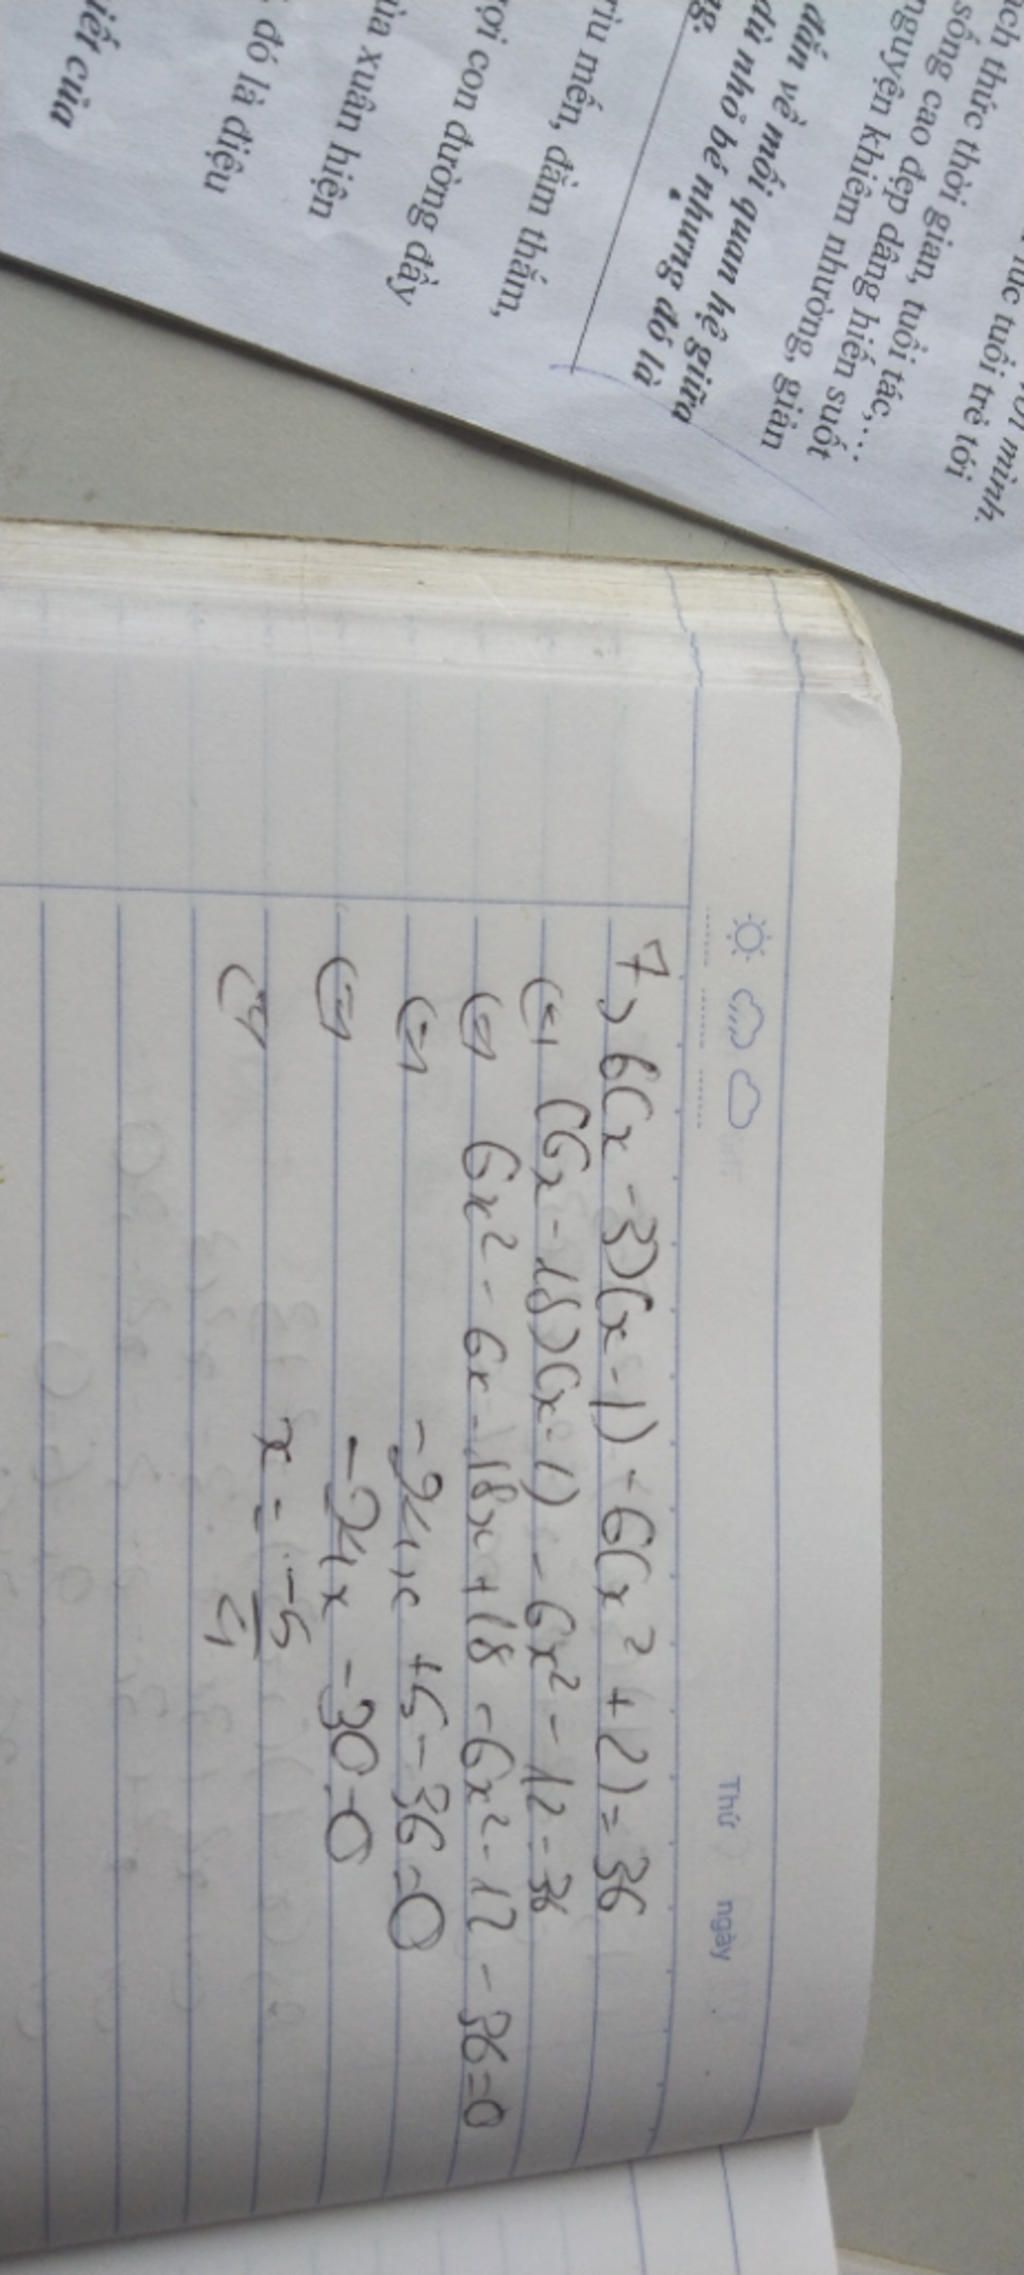 với mình.
lúc tuổi trẻ tới
ích thức thời gian, tuổi tác,...
sống cao đẹp dâng hiến suốt
nguyện khiêm nhường, giản
đắn về mối quan hệ giữa
dù nhỏ bé nhưng đó là
ng.
rìu mến, đằm thắm,
ợi con đường đầy
ùa xuân hiện
đó là điệu
iết của
Thứ ngày
7, 6(x - 3)(x - 1) - 6(x² + 2) = 36
(=) (6x - 18)(x - 1) - 6x² - 12 = 36
(=) 6x² - 6x - 18x + 18 - 6x² - 12 - 36 = 0
(=) -24x + 6 - 36 = 0
(=) -24x - 30 = 0
(=) x = -5/4